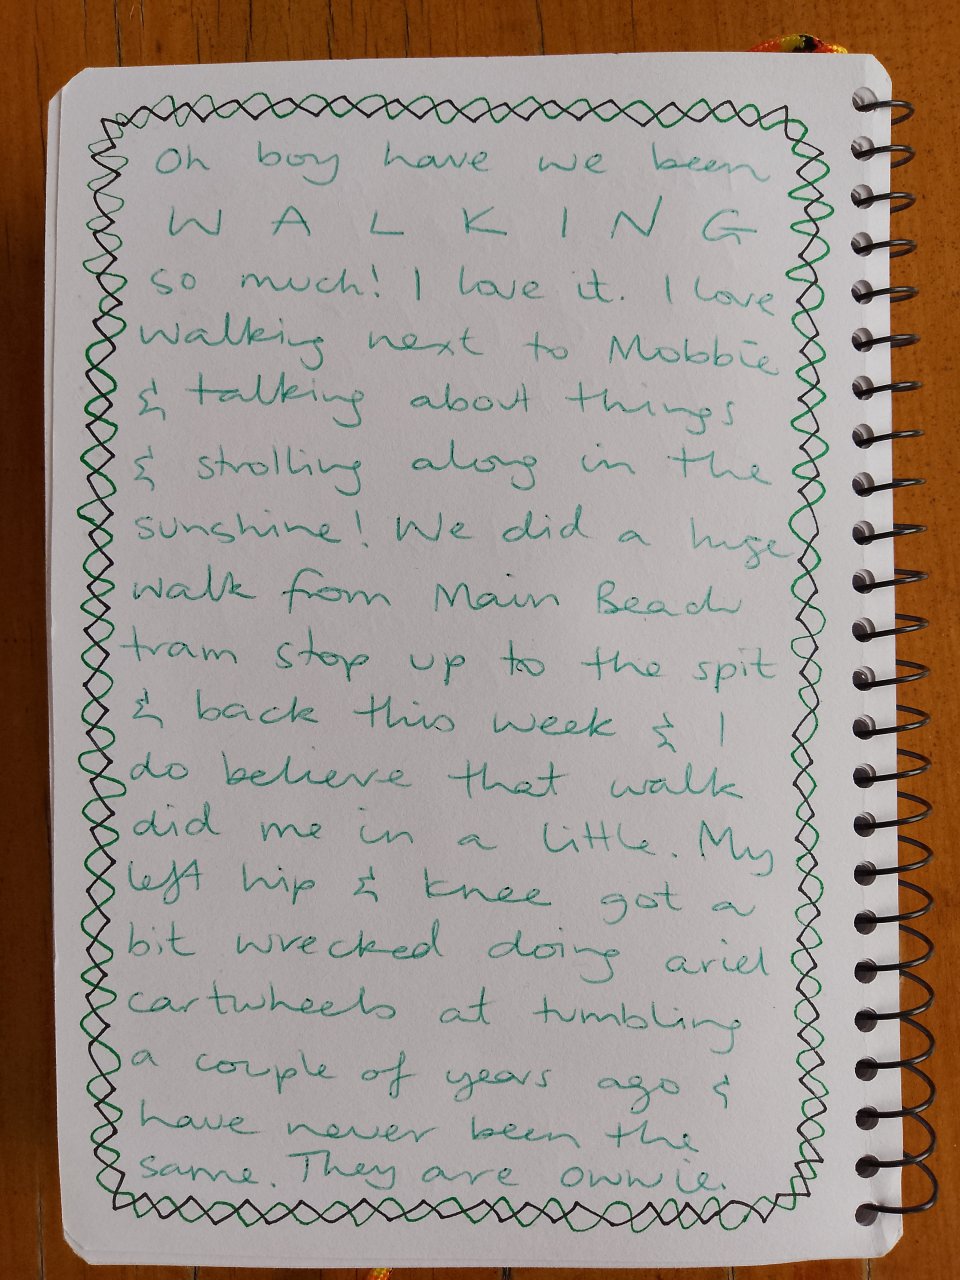 Oh boy have we been
W A L K I N G
so much! I love it. I love
walking next to Mobbie
& talking about things
& strolling along in the
sunshine! We did a huge
walk from Main Beach
tram stop up to the spit
& back this week & I
do believe that walk
did me in a little. My
left hip & knee got a
bit wrecked doing ariel
cartwheels at tumbling
a couple of years ago &
have never been the
same. They are owwie.